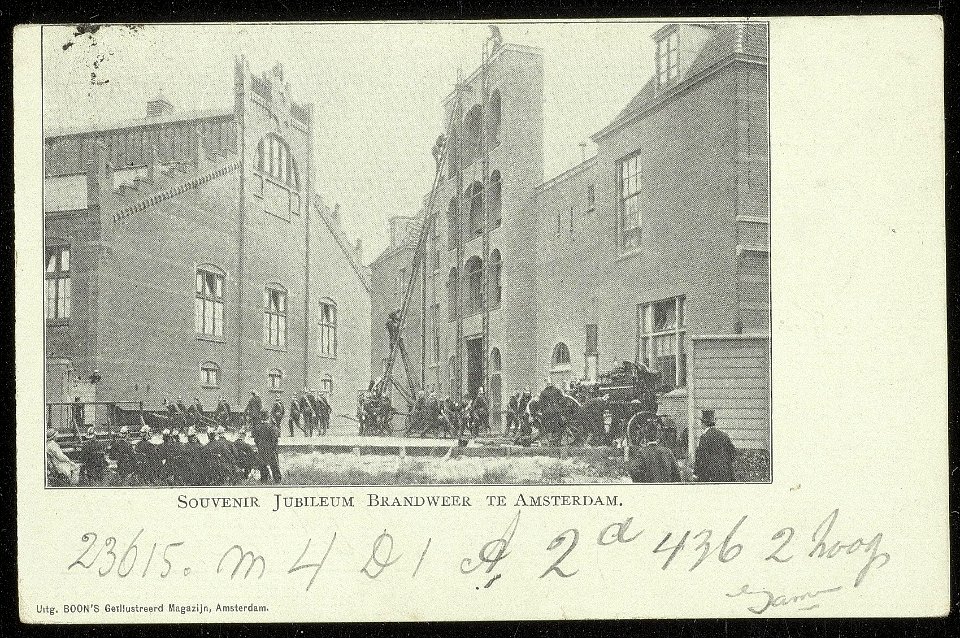 SOUVENIR JUBILEUM BRANDWEER TE AMSTERDAM.
23615. m 4 D 1 A 2d 436 2 hoog
Uitg. BOON'S Geïllustreerd Magazijn, Amsterdam.